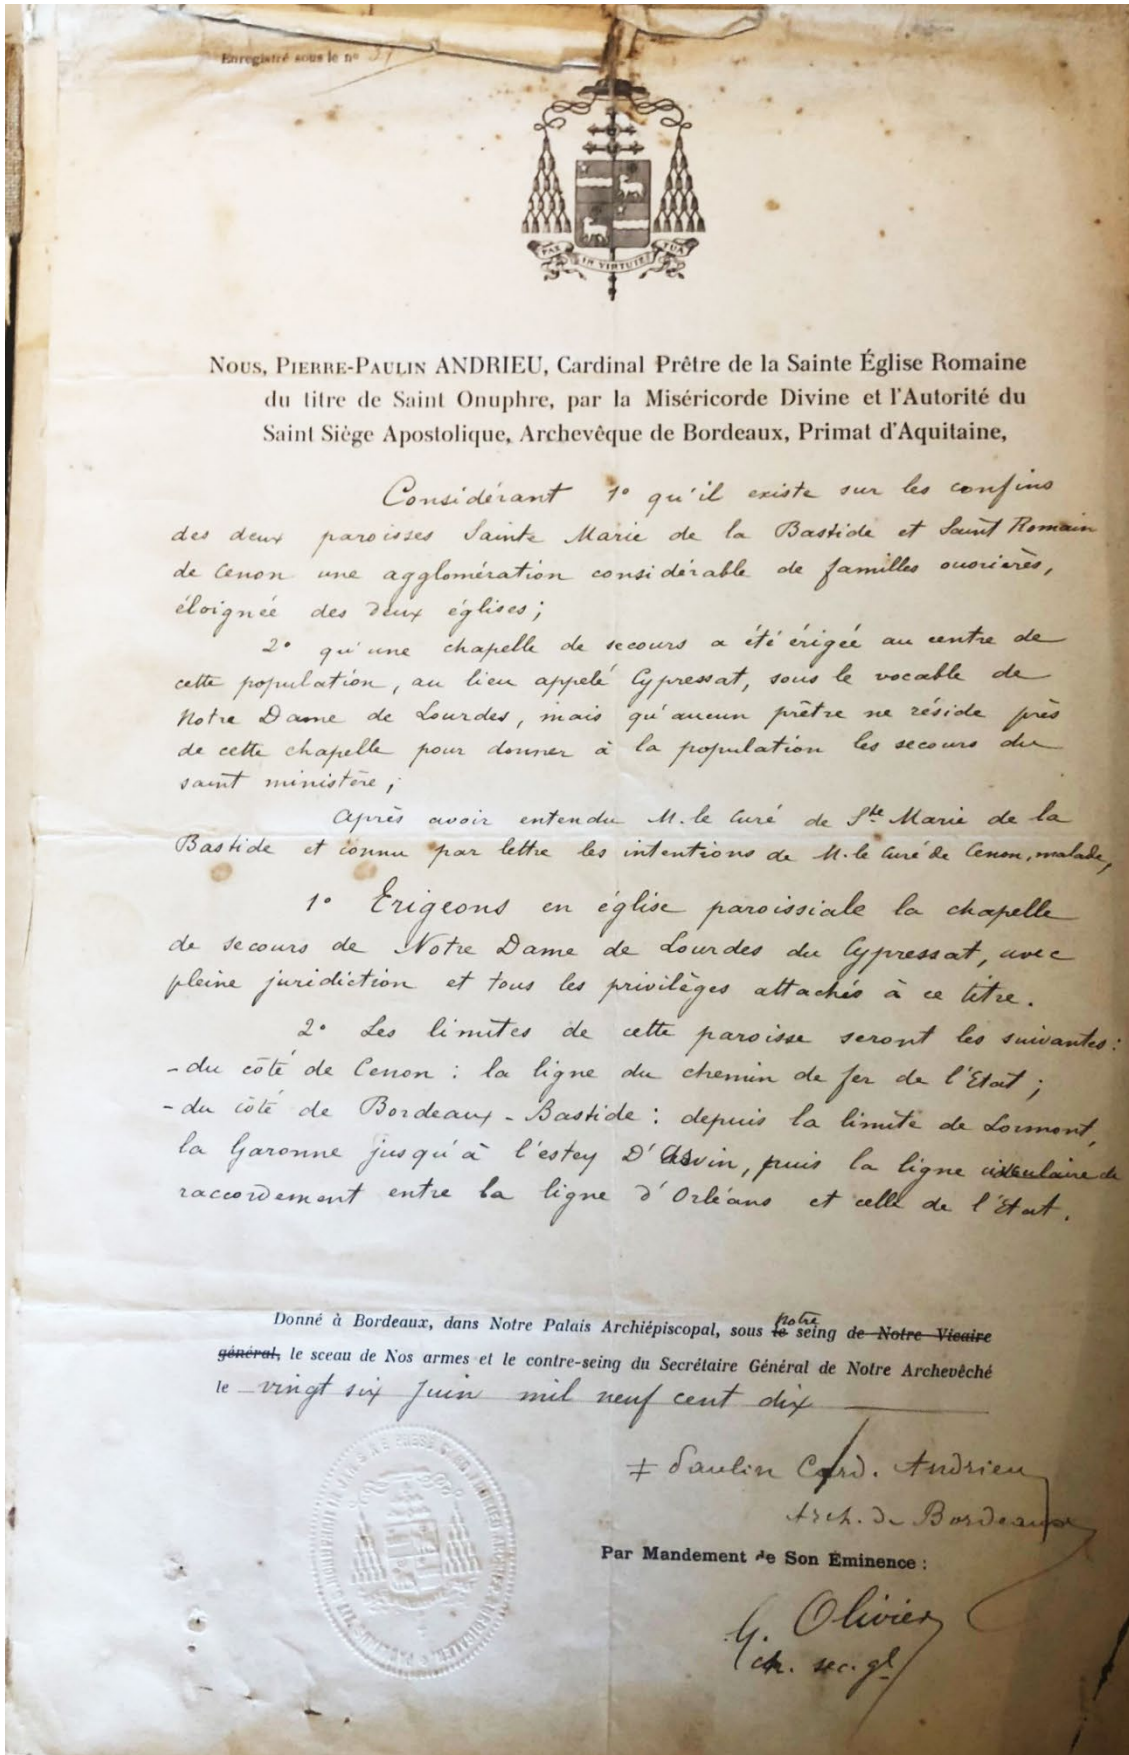 Enregistré sous le nº 37
PAX IN VIRTUTE TUA
Nous, Pierre-Paulin ANDRIEU, Cardinal Prêtre de la Sainte Église Romaine
du titre de Saint Onuphre, par la Miséricorde Divine et l'Autorité du
Saint Siège Apostolique, Archevêque de Bordeaux, Primat d'Aquitaine,
Considérant 1º qu'il existe sur les confins
des deux paroisses Sainte Marie de la Bastide et Saint Romain
de Cenon une agglomération considérable de familles ouvrières,
éloignée des deux églises;
2º qu'une chapelle de secours a été érigée au centre de
cette population, au lieu appelé Cypressat, sous le vocable de
Notre Dame de Lourdes, mais qu'aucun prêtre ne réside près
de cette chapelle pour donner à la population les secours du
saint ministère;
Après avoir entendu M. le Curé de Ste Marie de la
Bastide et connu par lettre les intentions de M. le Curé de Cenon, malade,
1º Erigeons en église paroissiale la chapelle
de secours de Notre Dame de Lourdes du Cypressat, avec
pleine juridiction et tous les privilèges attachés à ce titre.
2º Les limites de cette paroisse seront les suivantes:
- du côté de Cenon: la ligne du chemin de fer de l'Etat;
- du côté de Bordeaux-Bastide: depuis la limite de Lormont,
la Garonne jusqu'à l'estey D', puis la ligne circulaire de
raccordement entre la ligne d'Orléans et celle de l'Etat.
Donné à Bordeaux, dans Notre Palais Archiépiscopal, sous le Notre seing de Notre Vicaire
général, le sceau de Nos armes et le contre-seing du Secrétaire Général de Notre Archevêché
le vingt six Juin mil neuf cent dix
‡ Paulin Card. Andrieu
Arch. de Bordeaux
Par Mandement de Son Éminence :
G. Olivier
ch. sec. gl